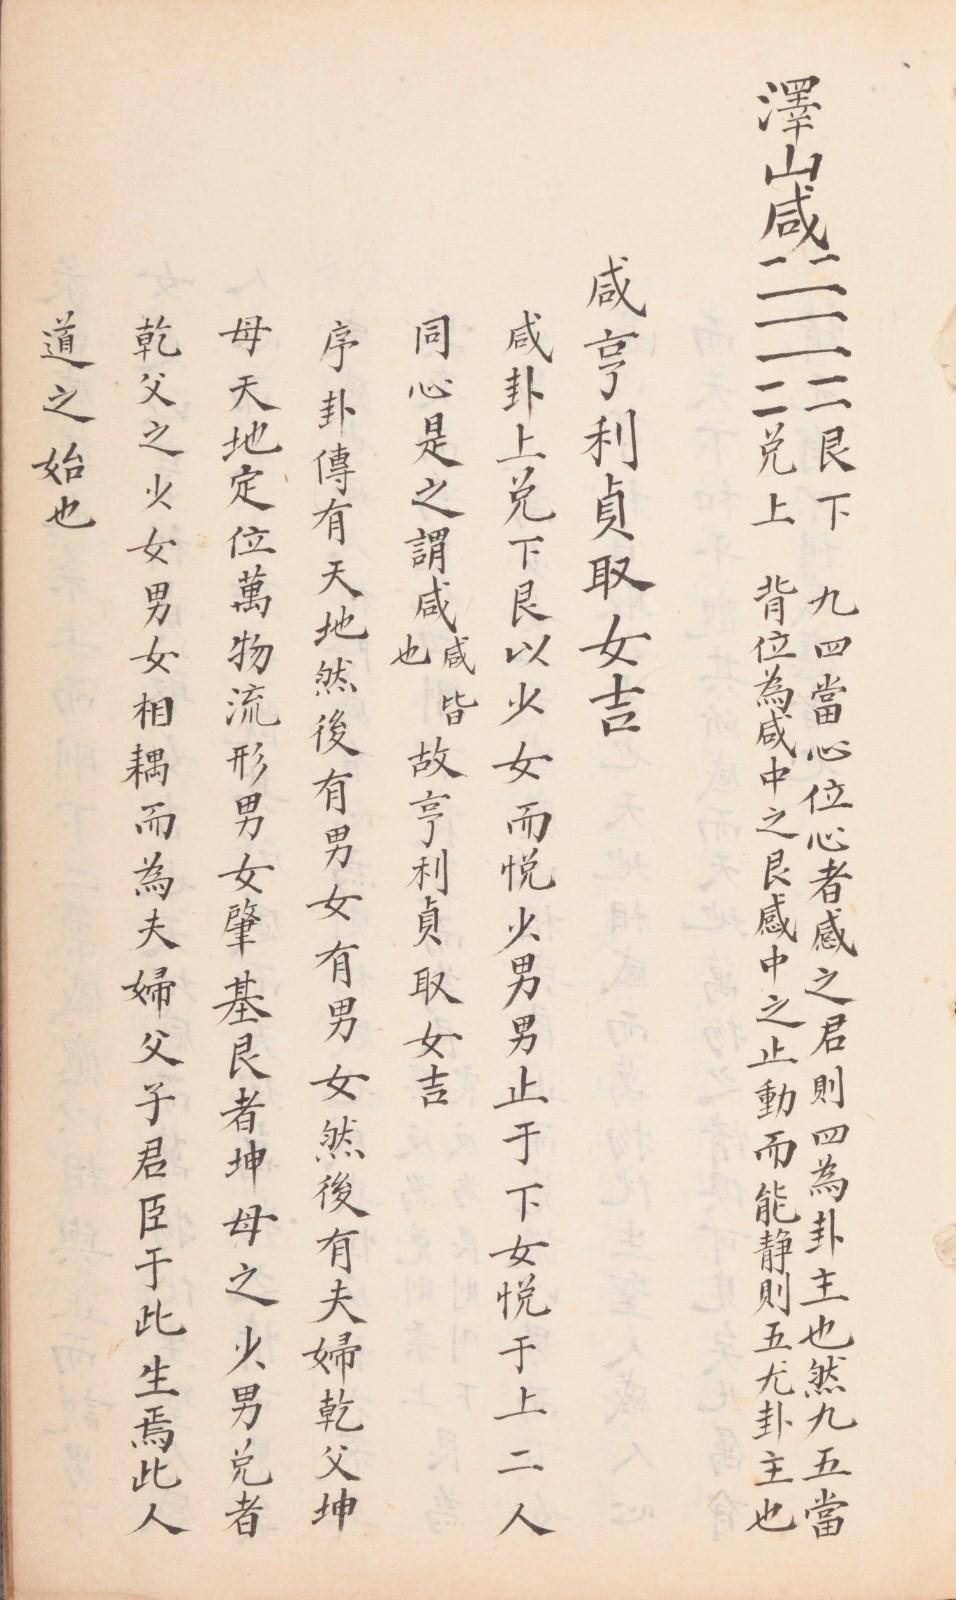 澤山咸䷞艮下
兑上
九四當心位心者感之君則四為卦主也然九五當
背位為咸中之艮感中之止動而能静則五尤卦主也
咸亨利貞取女吉
咸卦上兑下艮以少女而悦少男男止于下女悦于上二人
同心是之謂咸咸皆也故亨利貞取女吉
序卦傳有天地然後有男女有男女然後有夫婦乾父坤
母天地定位萬物流形男女肇基艮者坤母之少男兑者
乾父之少女男女相耦而為夫婦父子君臣于此生焉此人
道之始也